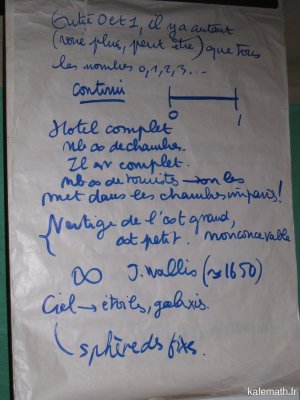 Entre 0 et 1, il y a autant
(voire plus, peut être) que tous
les nombres 0, 1, 2, 3, ...
Continu
0 1
Hotel complet
nb ∞ de chambres.
Il est complet.
nb ∞ de touristes → on les
met dans les chambres impaires!
Vertige de l'∞t grand,
∞t petit. nonconcevable
∞ J. Wallis (≈ 1650)
Ciel → étoiles, galaxies.
sphère des fixes.
kafemath.fr